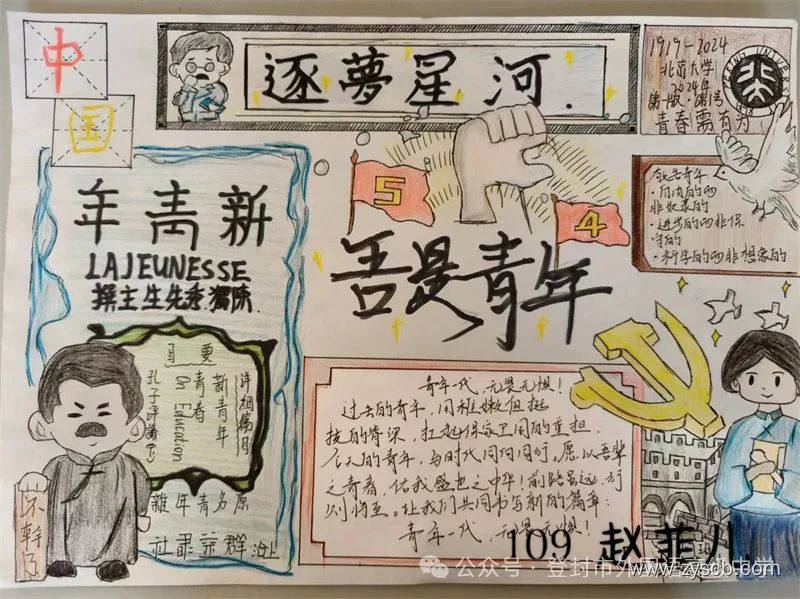 中
国
逐夢星河.
1919-2024
北京大学
2024年
第一版·第1号
青春需有为
年青新
LAJEUNESSE
撰主生先秀獨陳
5
4
吾是青年
青年
·进步的而非保
守的
·科学的而非想象的
要目
新青年
青春
On Education
孔子评議下
雜年青名原
社書益群海上
青年一代,无畏无惧!
过去的青年,用稚嫩但挺
拔的脊梁,扛起保家卫国的重担.
今天的青年,与时代同向同行.愿以吾辈
之青春,佑我盛世之中华!前路虽远,行
则将至.让我们共同书写新的篇章.
青年一代,无畏无惧!
109 赵菲儿
公众号·登封市外国语
中学
www.zyscb.com